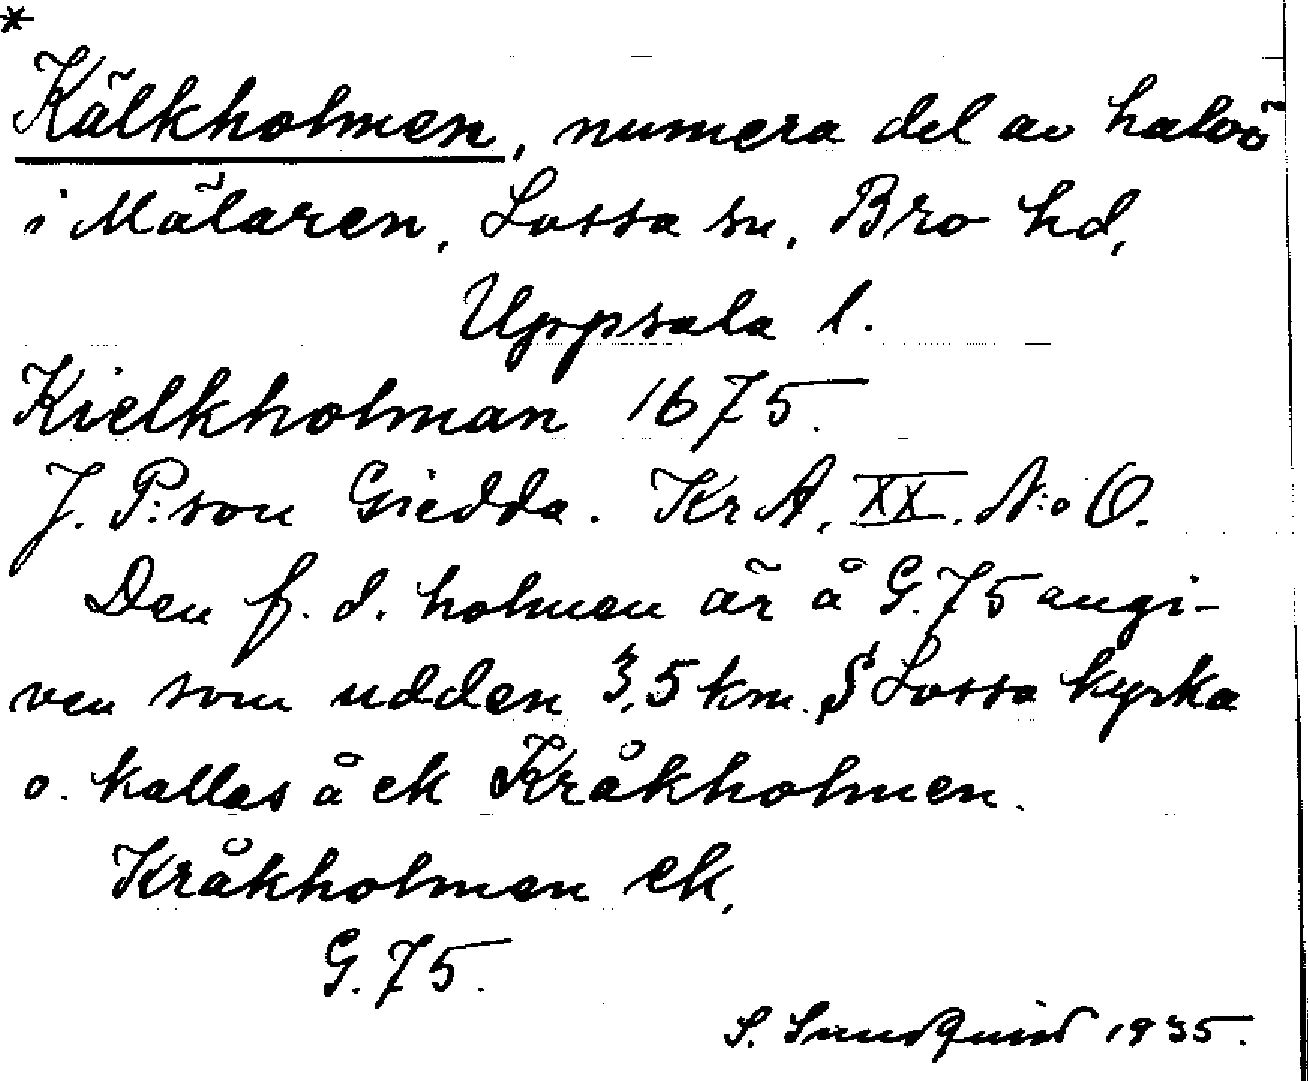 *
Kälkholmen, numera del av halvö
i Mälaren, Lossa sn, Bro hd,
Uppsala l.
Kielkholman 1675.
J. P:son Giedda. KrA, XX. N:o O.
Den f. d. holmen är å G. 75 angi-
ven som udden 3,5 km. S Lossa kyrka
o. kallas å ek Kråkholmen.
Kråkholmen ek,
G. 75.
S. Sundquist 1935.